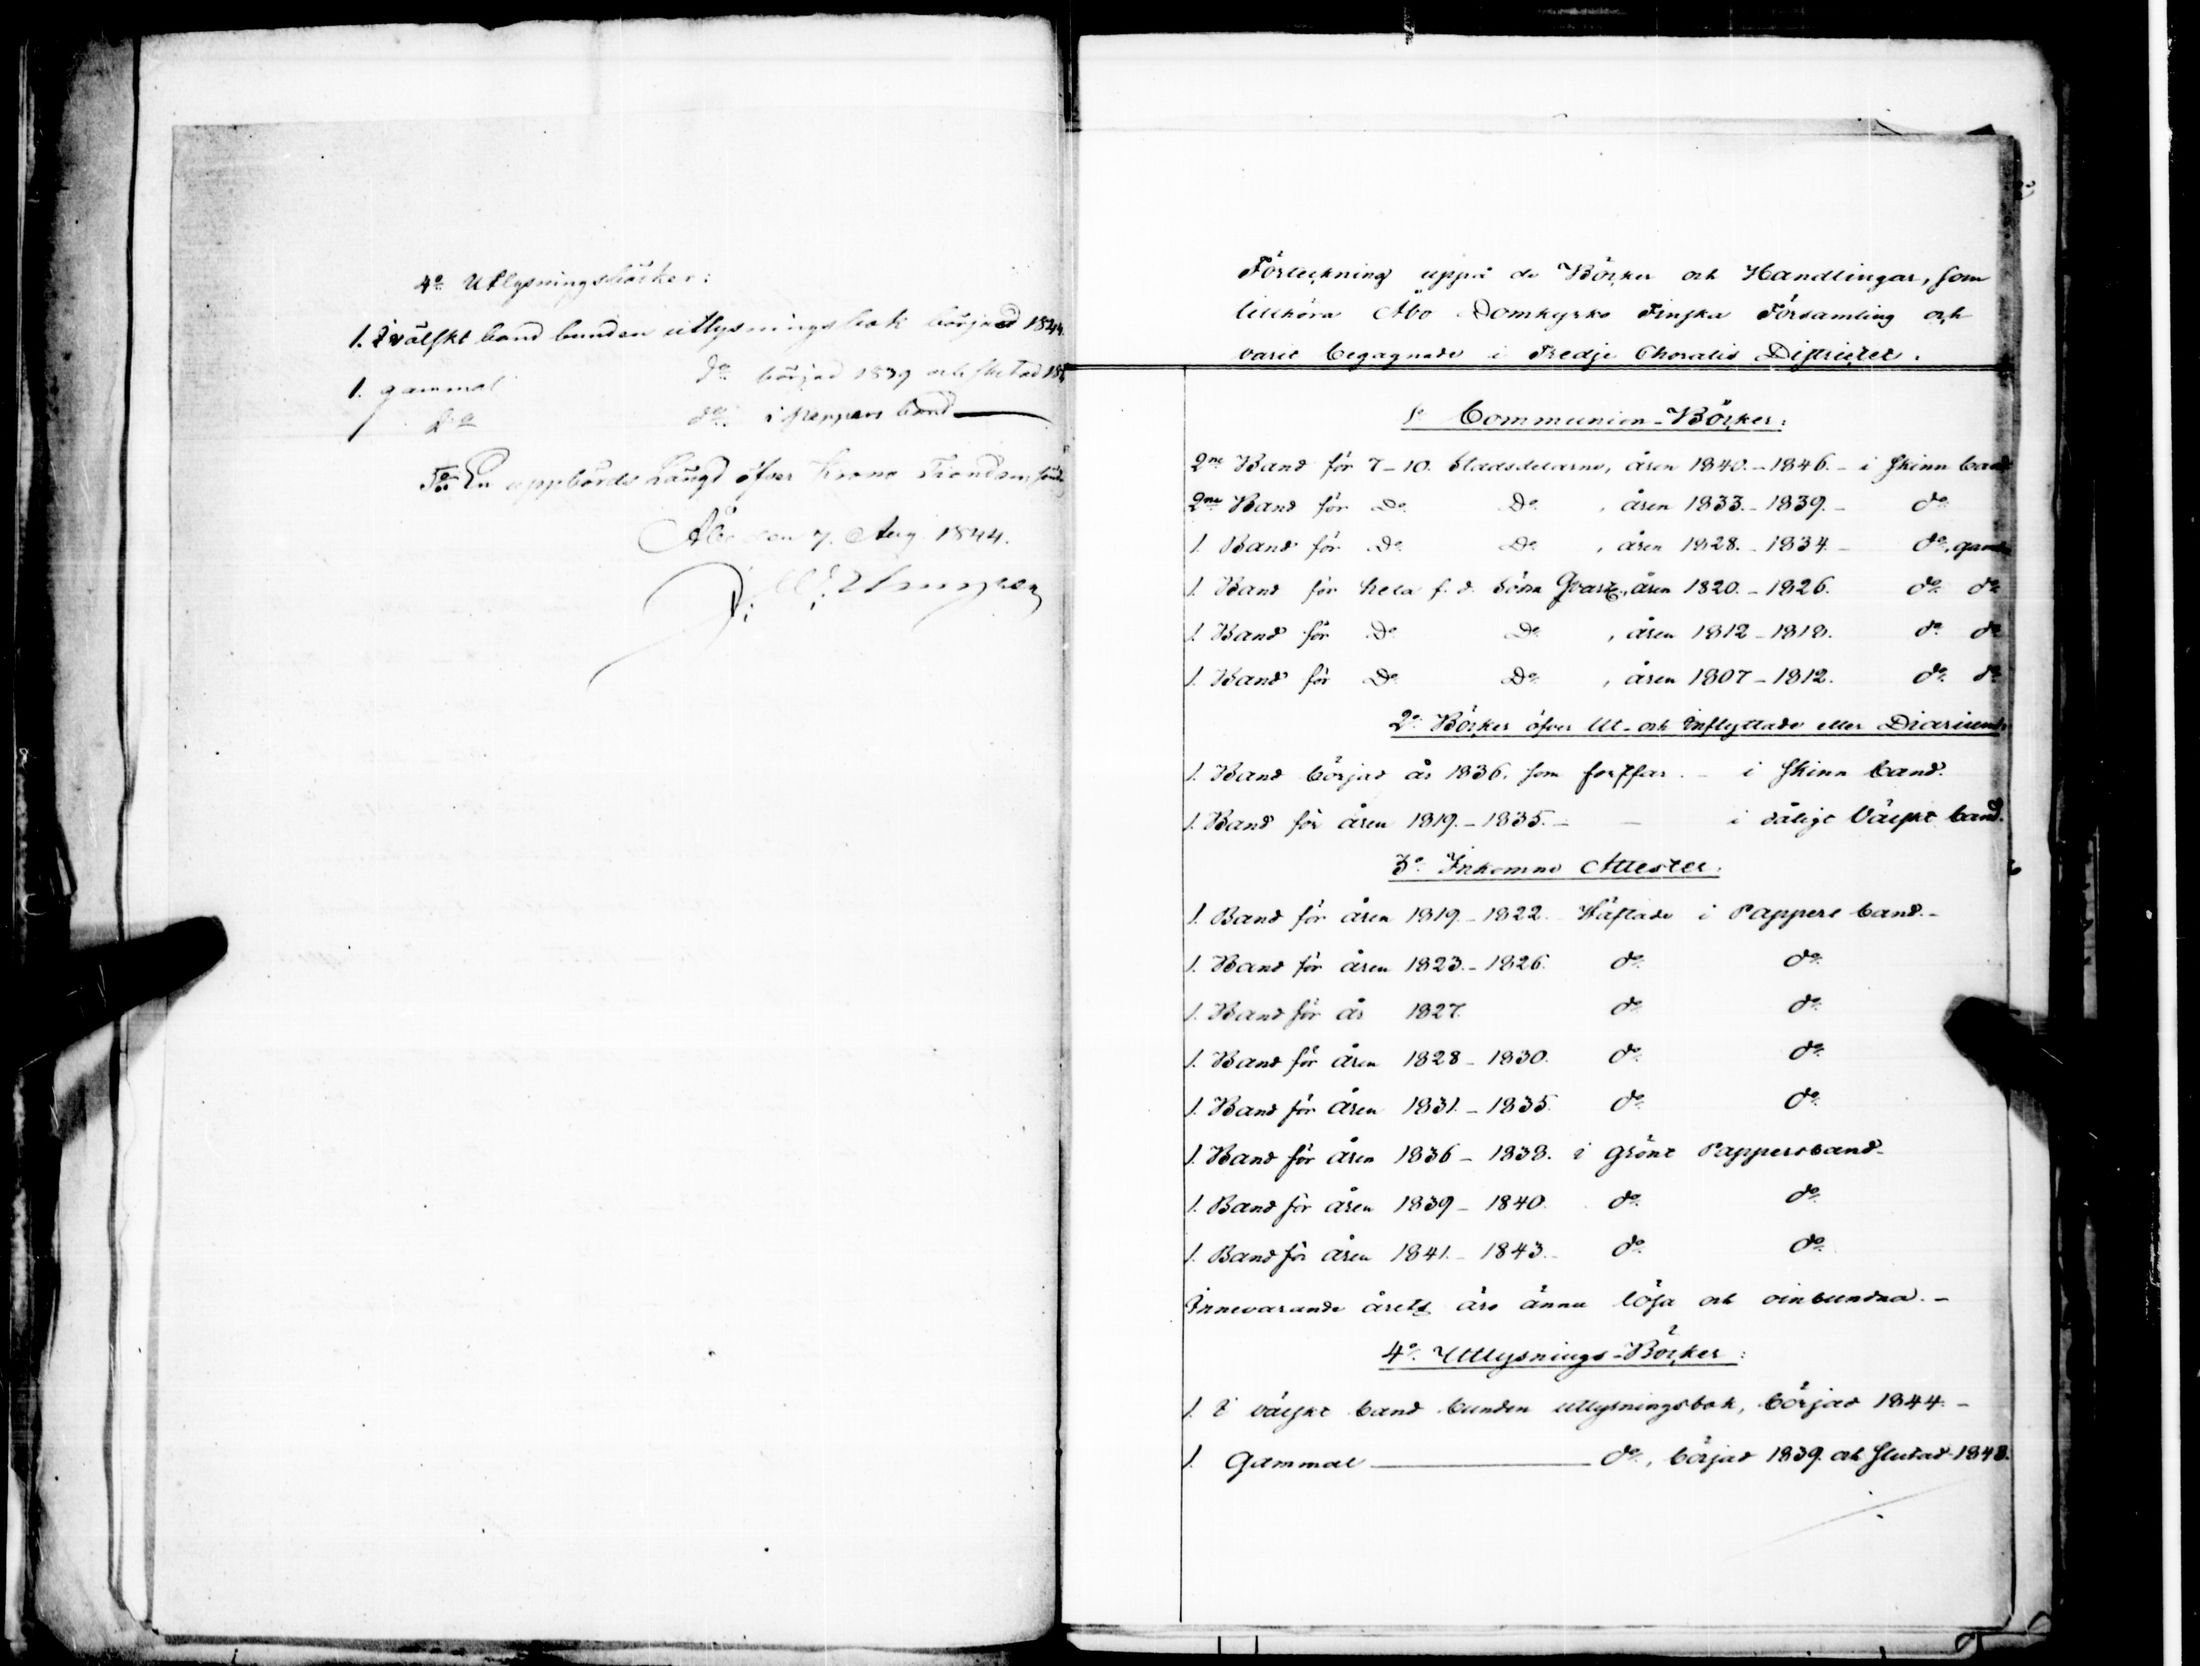 4o Utlysningsböcker:
1. I välskt band bunden utlysningsbok börjad 1844.
1. gammal do börjad 1839 och slutad 18
do do i Pappers band
5o En uppbörds Längd öfver Krono Tionden
Åbo den 7. Aug. 1844.
Förteckning uppå de Böcker och Handlingar, som
tillhöra Åbo Domkyrko Finska Församling och
varit begagnade i Tredje Choralis Districtet.
1o Communion-Böcker:
2ne Band för 7-10. Stadsdelarne, åren 1840.-1846.- i Skinn band
2ne Band för Do Do, åren 1833.-1839.- do
1. Band för Do Do, åren 1828.-1834.- do,
1. Band för hela f. d. Södra Qvart., åren 1820.-1826. do do
1. Band för Do Do, åren 1812-1818. do do
1. Band för Do Do, åren 1807-1812. do do
2o Böcker öfver Ut- och Inflyttade eller Diarium
1. Band börjad år 1836. som fortfar. - i Skinn band.
1. Band för åren 1819.-1835.- - i dåligt Välskt band.
3o Inkomne Attester.
1. Band för åren 1819.-1822. Häftade i Pappers band.-
1. Band för åren 1823.-1826. do do
1. Band för år 1827. do do
1. Band för åren 1828-1830. do do
1. Band för åren 1831.-1835. do do
1. Band för åren 1836-1838. i grönt Pappersband-
1. Band för åren 1839-1840. do do
1. Band för åren 1841.-1843.- do do
Innevarande årets äro ännu lösa och oinbundna.-
4o Utlysnings-Böcker:
1. I välskt band bunden utlysningsbok, börjad 1844.-
1. Gammal do, börjad 1839. och slutad 1843.